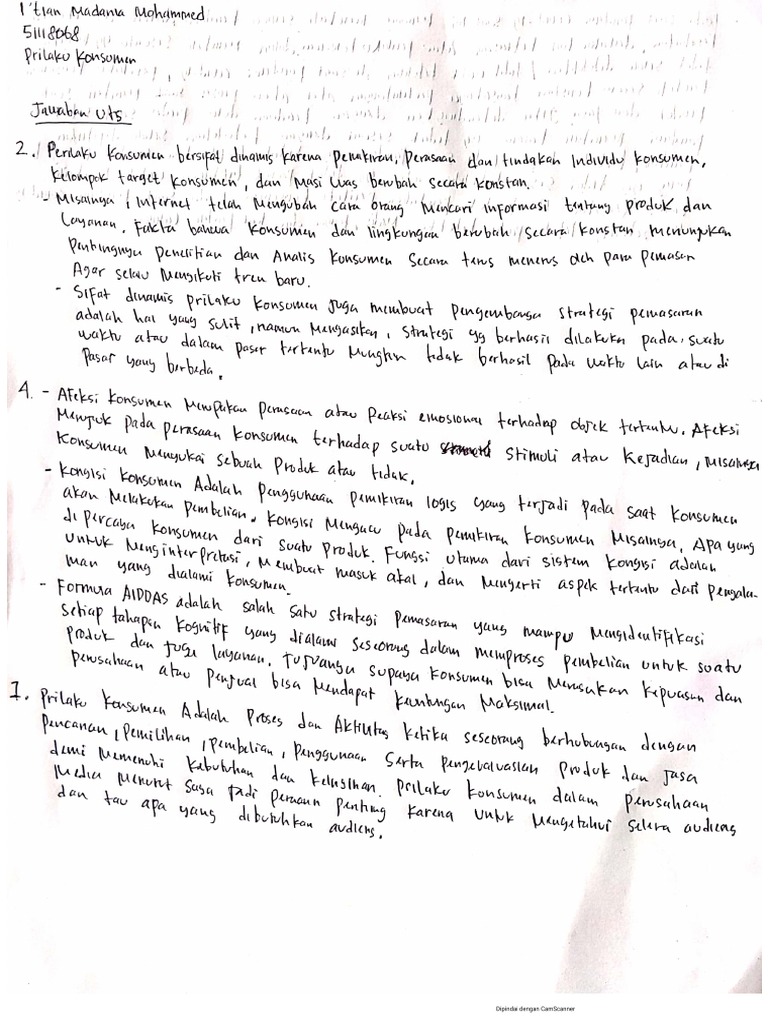 I'tian Madania Mohammed
51118068
Prilaku Konsumen
Jawaban UTS
2. Perilaku Konsumen bersifat dinamis karena Pemikiran, Perasaan dan tindakan Individu konsumen,
Kelompok target konsumen, dan Masi Was berubah Secara Konstan.
- Misalnya, Internet telah Mengubah Cara orang Mencari informasi tentang produk dan
Layanan. Fakta bahwa konsumen dan lingkungan berubah secara konstan menunjukan
Pentingnya Penelitian dan Analis Konsumen Secara terus menerus oleh para Pemasar
Agar selau Mengikuti tren baru.
- Sifat dinamis prilaku konsumen Juga membuat Pengembanga strategi pemasaran
adalah hal yang sulit, namun Mengasikan, Strategi yg berhasil dilakukan pada suatu
waktu atau dalam Pasar tertentu Mungkin tidak berhasil pada waktu lain atau di
Pasar yang berbeda.
4. - Afeksi Konsumen Merupakan Perasaan atau Reaksi emosional terhadap objek tertentu. Afeksi
Merujuk pada perasaan konsumen terhadap suatu Stimuli atau Kejadian, Misalnya
Konsumen Menyukai sebuah Produk atau tidak.
- Kongisi Konsumen Adalah Penggunaan pemikiran logis yang terjadi pada saat konsumen
akan Melakukan Pembelian. Kongisi Mengacu pada pemikiran konsumen Misalnya, Apa yang
di percaya konsumen dari suatu produk. Fungsi utama dari sistem kongisi adalah
untuk Menginterpretasi, Membuat masuk akal, dan Mengerti aspek tertentu dari Pengala-
man yang dialami konsumen.
- Formula AIDDAS adalah salah satu strategi Pemasaran yang mampu Mengidentifikasi
Setiap tahapan Kognitif yang dialami seseorang dalam memproses pembelian untuk suatu
Produk dan juga layanan. Tujuanya supaya konsumen bisa Merasakan Kepuasan dan
perusahaan atau Penjual bisa Mendapat keuntungan Maksimal.
1. Prilaku Konsumen Adalah Proses dan Aktivitas ketika seseorang berhubungan dengan
Pencarian, Pemilihan, Pembelian, Penggunaan Serta Pengevaluasian Produk dan Jasa
demi Memenuhi Kebutuhan dan keinginan. Prilaku konsumen dalam perusahaan
Media Menurut Saya Jadi Peranan Penting karena untuk Mengetahui Selera audiens
dan tau apa yang dibutuhkan audiens.
Dipindai dengan CamScanner